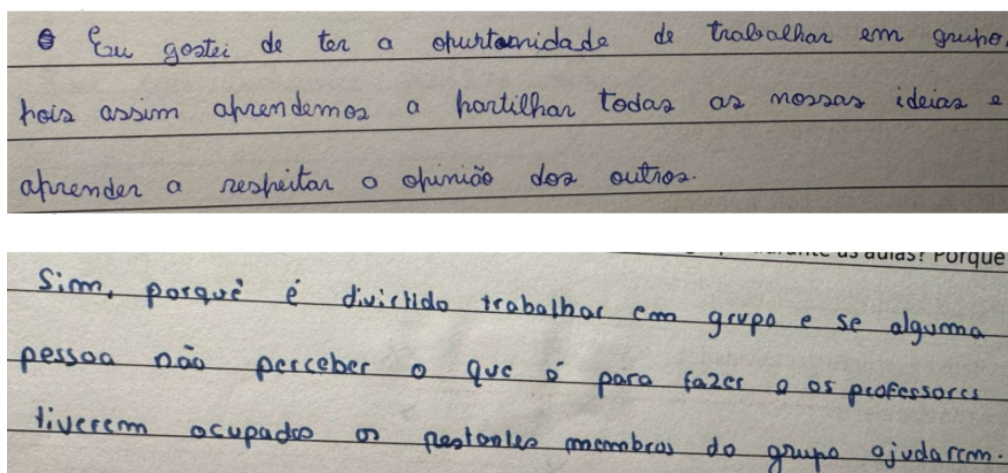 Eu gostei de ter a opurtonidade de trabalhar em grupo,
pois assim aprendemos a partilhar todas as nossas ideias e
aprender a respeitar a opinião dos outros.
durante as aulas? Porque
Sim, porquê é divirtido trabalhar em grupo e se alguma
pessoa não perceber o que é para fazer e os professores
tiverem ocupados os restantes membros do grupo ajudarem.